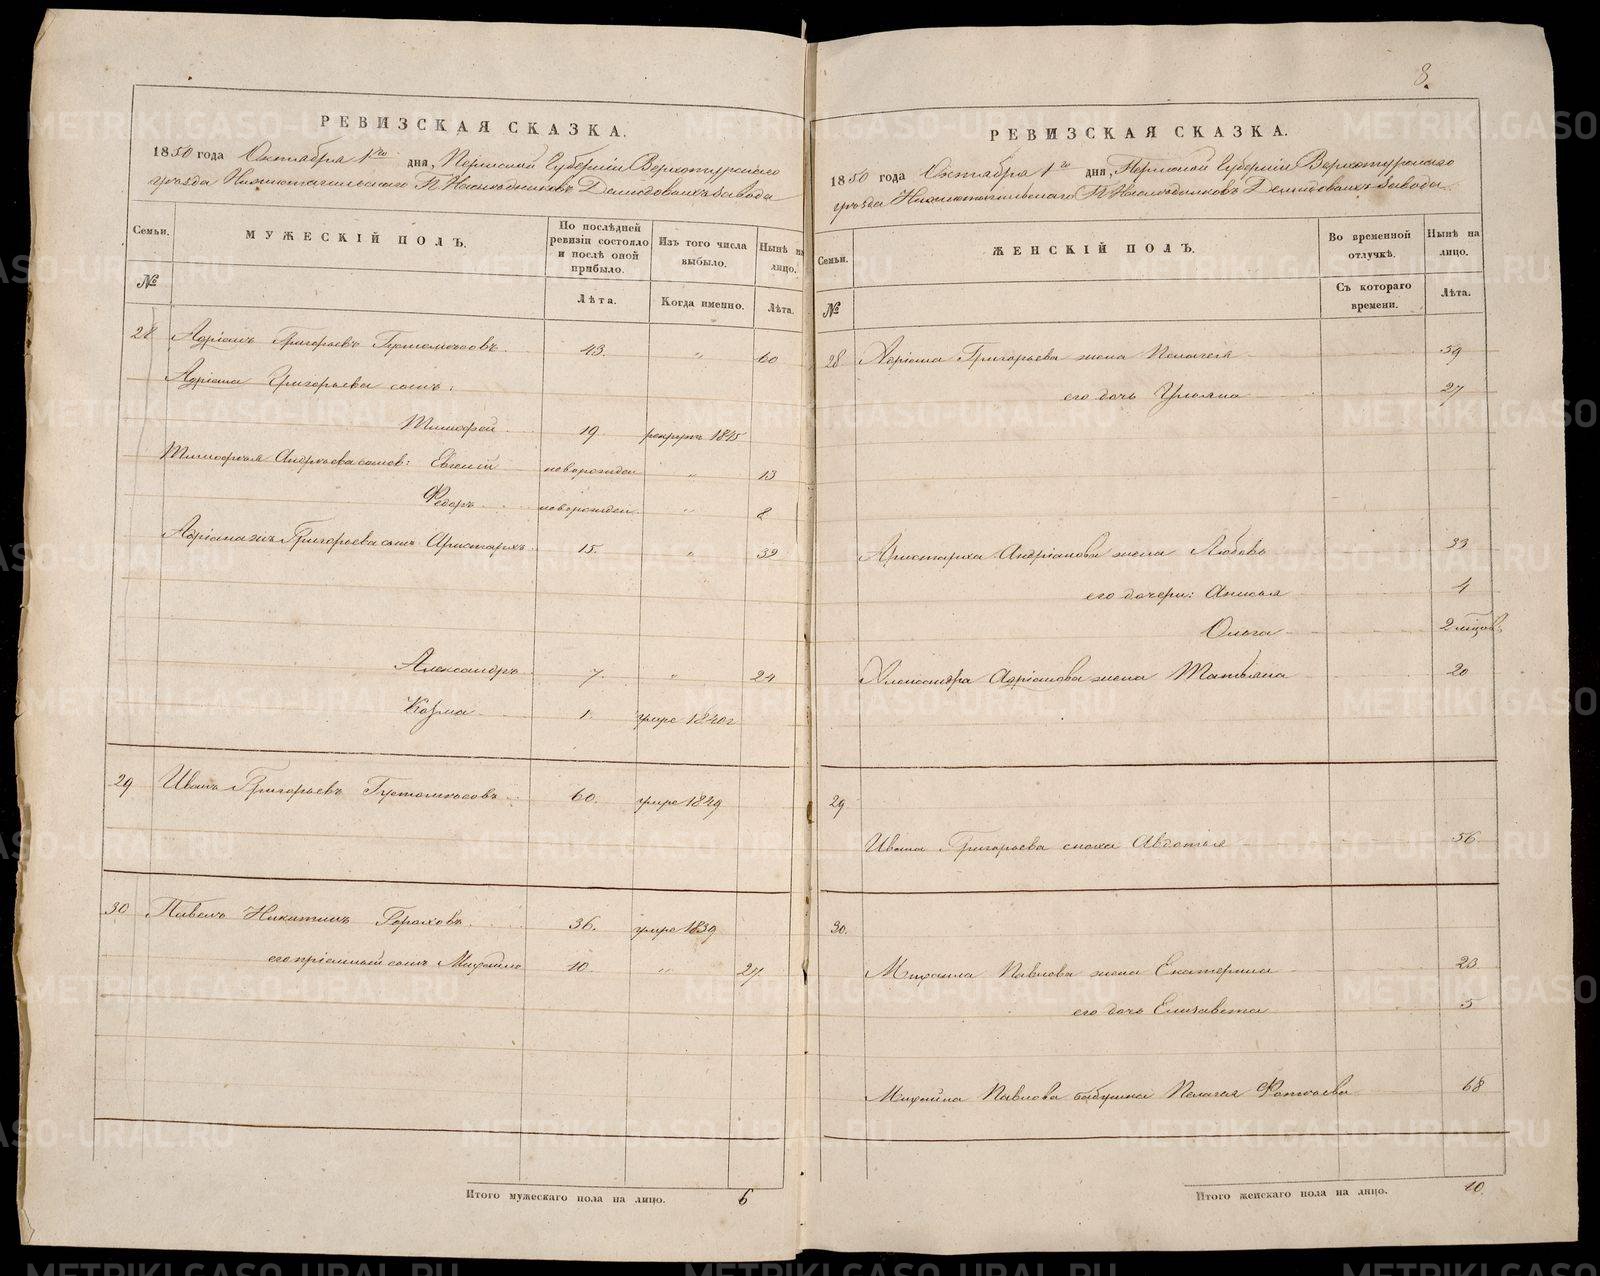 8.
РЕВИЗСКАЯ СКАЗКА.
1850 года Октября 1го дня, Пермской Губерніи Верхотурскаго
уѣзда Нижнетагильскаго Г. Наслѣдниковъ Демидовыхъ завода
Семьи.
№
МУЖЕСКІЙ ПОЛЪ.
По послѣдней ревизіи состояло и послѣ оной прибыло.
Лѣта.
Изъ того числа выбыло.
Когда именно.
Нынѣ на лицо.
Лѣта.
28 Адріанъ Григорьевъ 43. " 60
Адріана Григорьева сынъ:
Тимофей 19 рекрутъ 1845
Тимофея Андреева сынов: Евгеній новорожден " 13
Федоръ новорожден " 8
Адріана жъ Григорьева сынъ Аристархъ 15. " 32
Александръ 7. " 24
Козма 1. умре 1840г
29 Иванъ Григорьевъ 60. умре 1849
30 Павелъ Никитинъ Гораховъ 36. умре 1839
его пріемный сынъ Михайло 10 " 27
Итого мужескаго пола на лицо. 6
РЕВИЗСКАЯ СКАЗКА.
1850 года Октября 1го дня, Пермской Губерніи Верхотурскаго
уѣзда Нижнетагильскаго Г. Наслѣдниковъ Демидовыхъ завода
Семьи.
№
ЖЕНСКІЙ ПОЛЪ.
Во временной отлучкѣ.
Съ котораго времени.
Нынѣ на лицо.
Лѣта.
28 Адріана Григорьева жена Пелагея 59
его дочь Ульяна 27
Аристарха Андріанова жена Любовь 33
его дочери: Анисья 4
Ольга 2 мѣсяц.
Александра Адріанова жена Татьяна 20
29
Ивана Григорьева сноха Авдотья 56
30.
Михаила Павлова жена Екатерина 23
его дочь Елизавета 5
Михайла Павлова бабушка Пелагея 68
Итого женскаго пола на лицо. 10.
METRIKI.GASO-URAL.RU